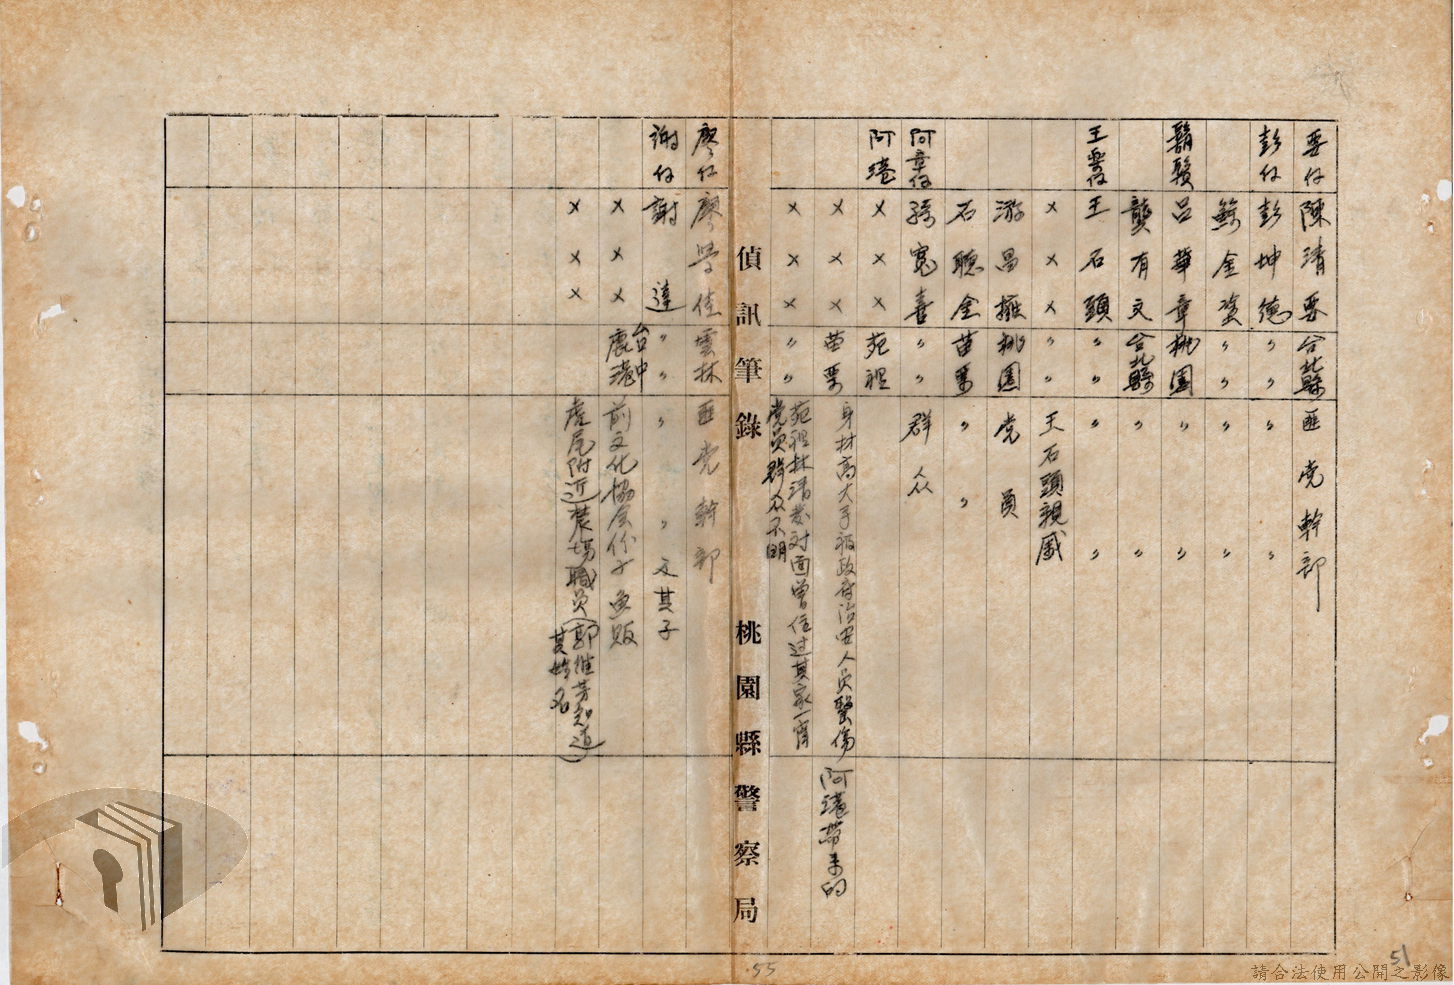 要仔 陳清要 台北縣 匪党幹部
彭仔 彭坤德 〃〃 〃〃
鯨金塗 〃〃 〃〃
鬍鬚 呂華章 桃園 〃〃
龔有文 台北縣 〃〃
王要仔 王石頭 〃〃 〃〃
××× 〃〃 王石頭親戚
游昌擁 桃園 党員
石聰金 苗栗 〃〃
阿章仔 喜 〃〃 群众
阿港 ××× 苑裡
××× 苗栗 身材高大手被政府治安人員擊傷 阿港帶来的
××× 〃〃 苑裡林清 对面曾住过其家一宵
党員群众不明
偵訊筆錄 桃園縣警察局
廖仔 廖學佳 雲林 匪党幹部
謝仔 謝達 〃〃 〃〃 文其子
××× 台中鹿港 前文化協会份子魚販
××× 虎尾附近農場職員(郭維芳知道其姓名)
55
51
請合法使用公開之影像